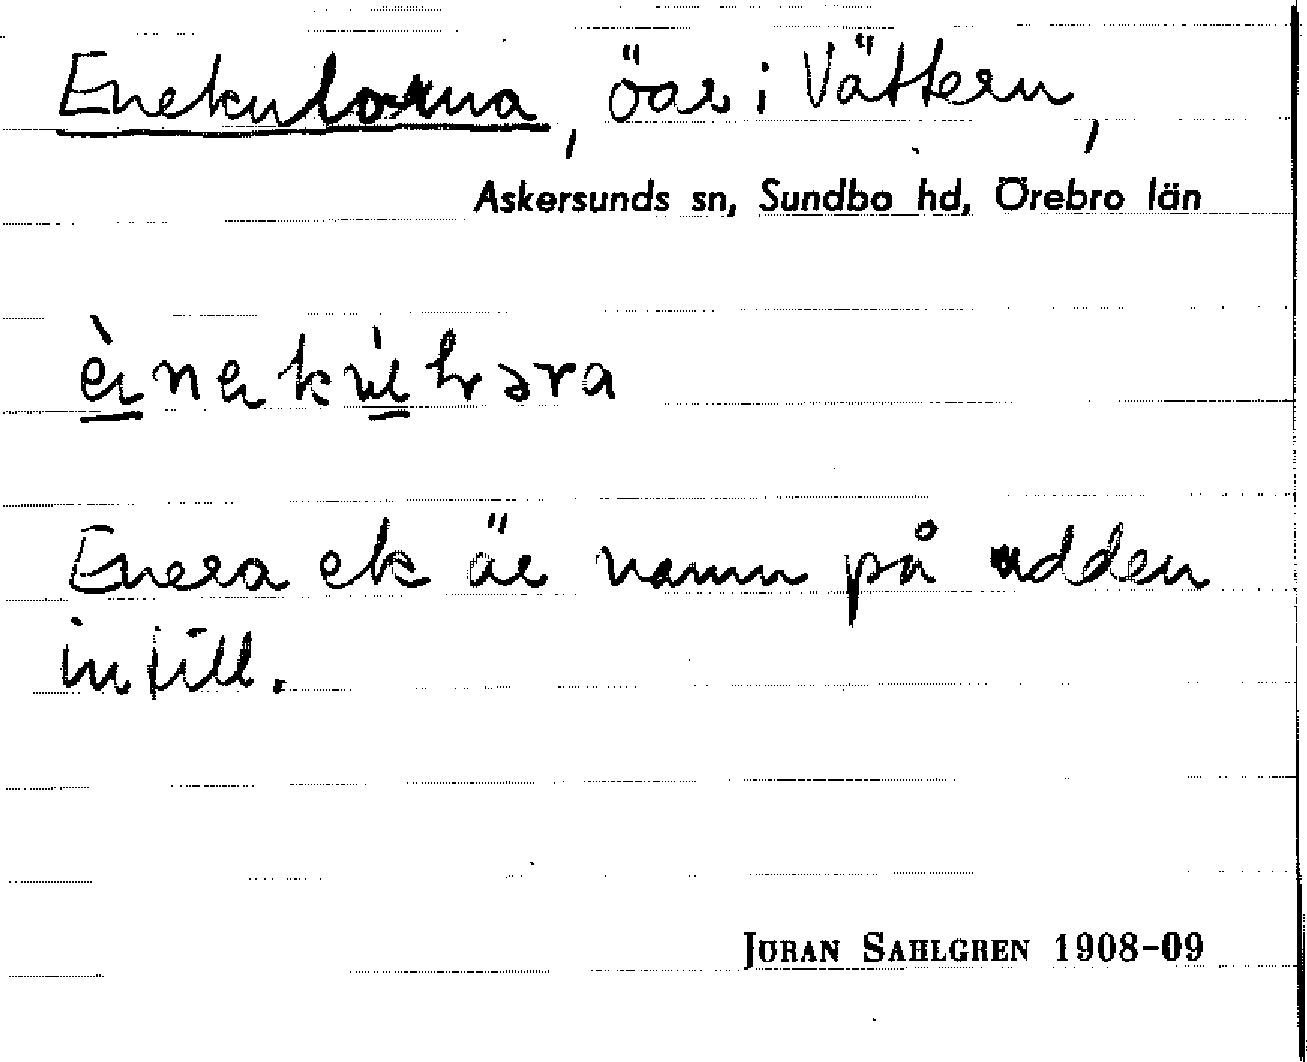 Enekulorna, öar i Vättern,
Askersunds sn, Sundbo hd, Örebro län
Enera ek är namn på udden
intill.
JÖRAN SAHLGREN 1908-09